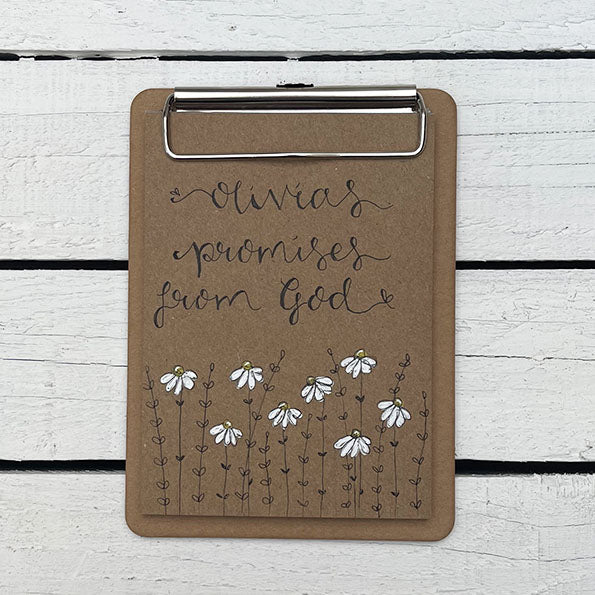 olivias
promises
from God